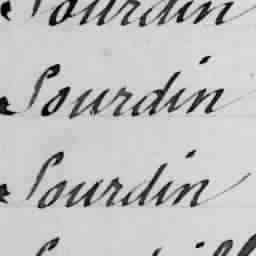 Sourdin
Sourdin
Sourdin